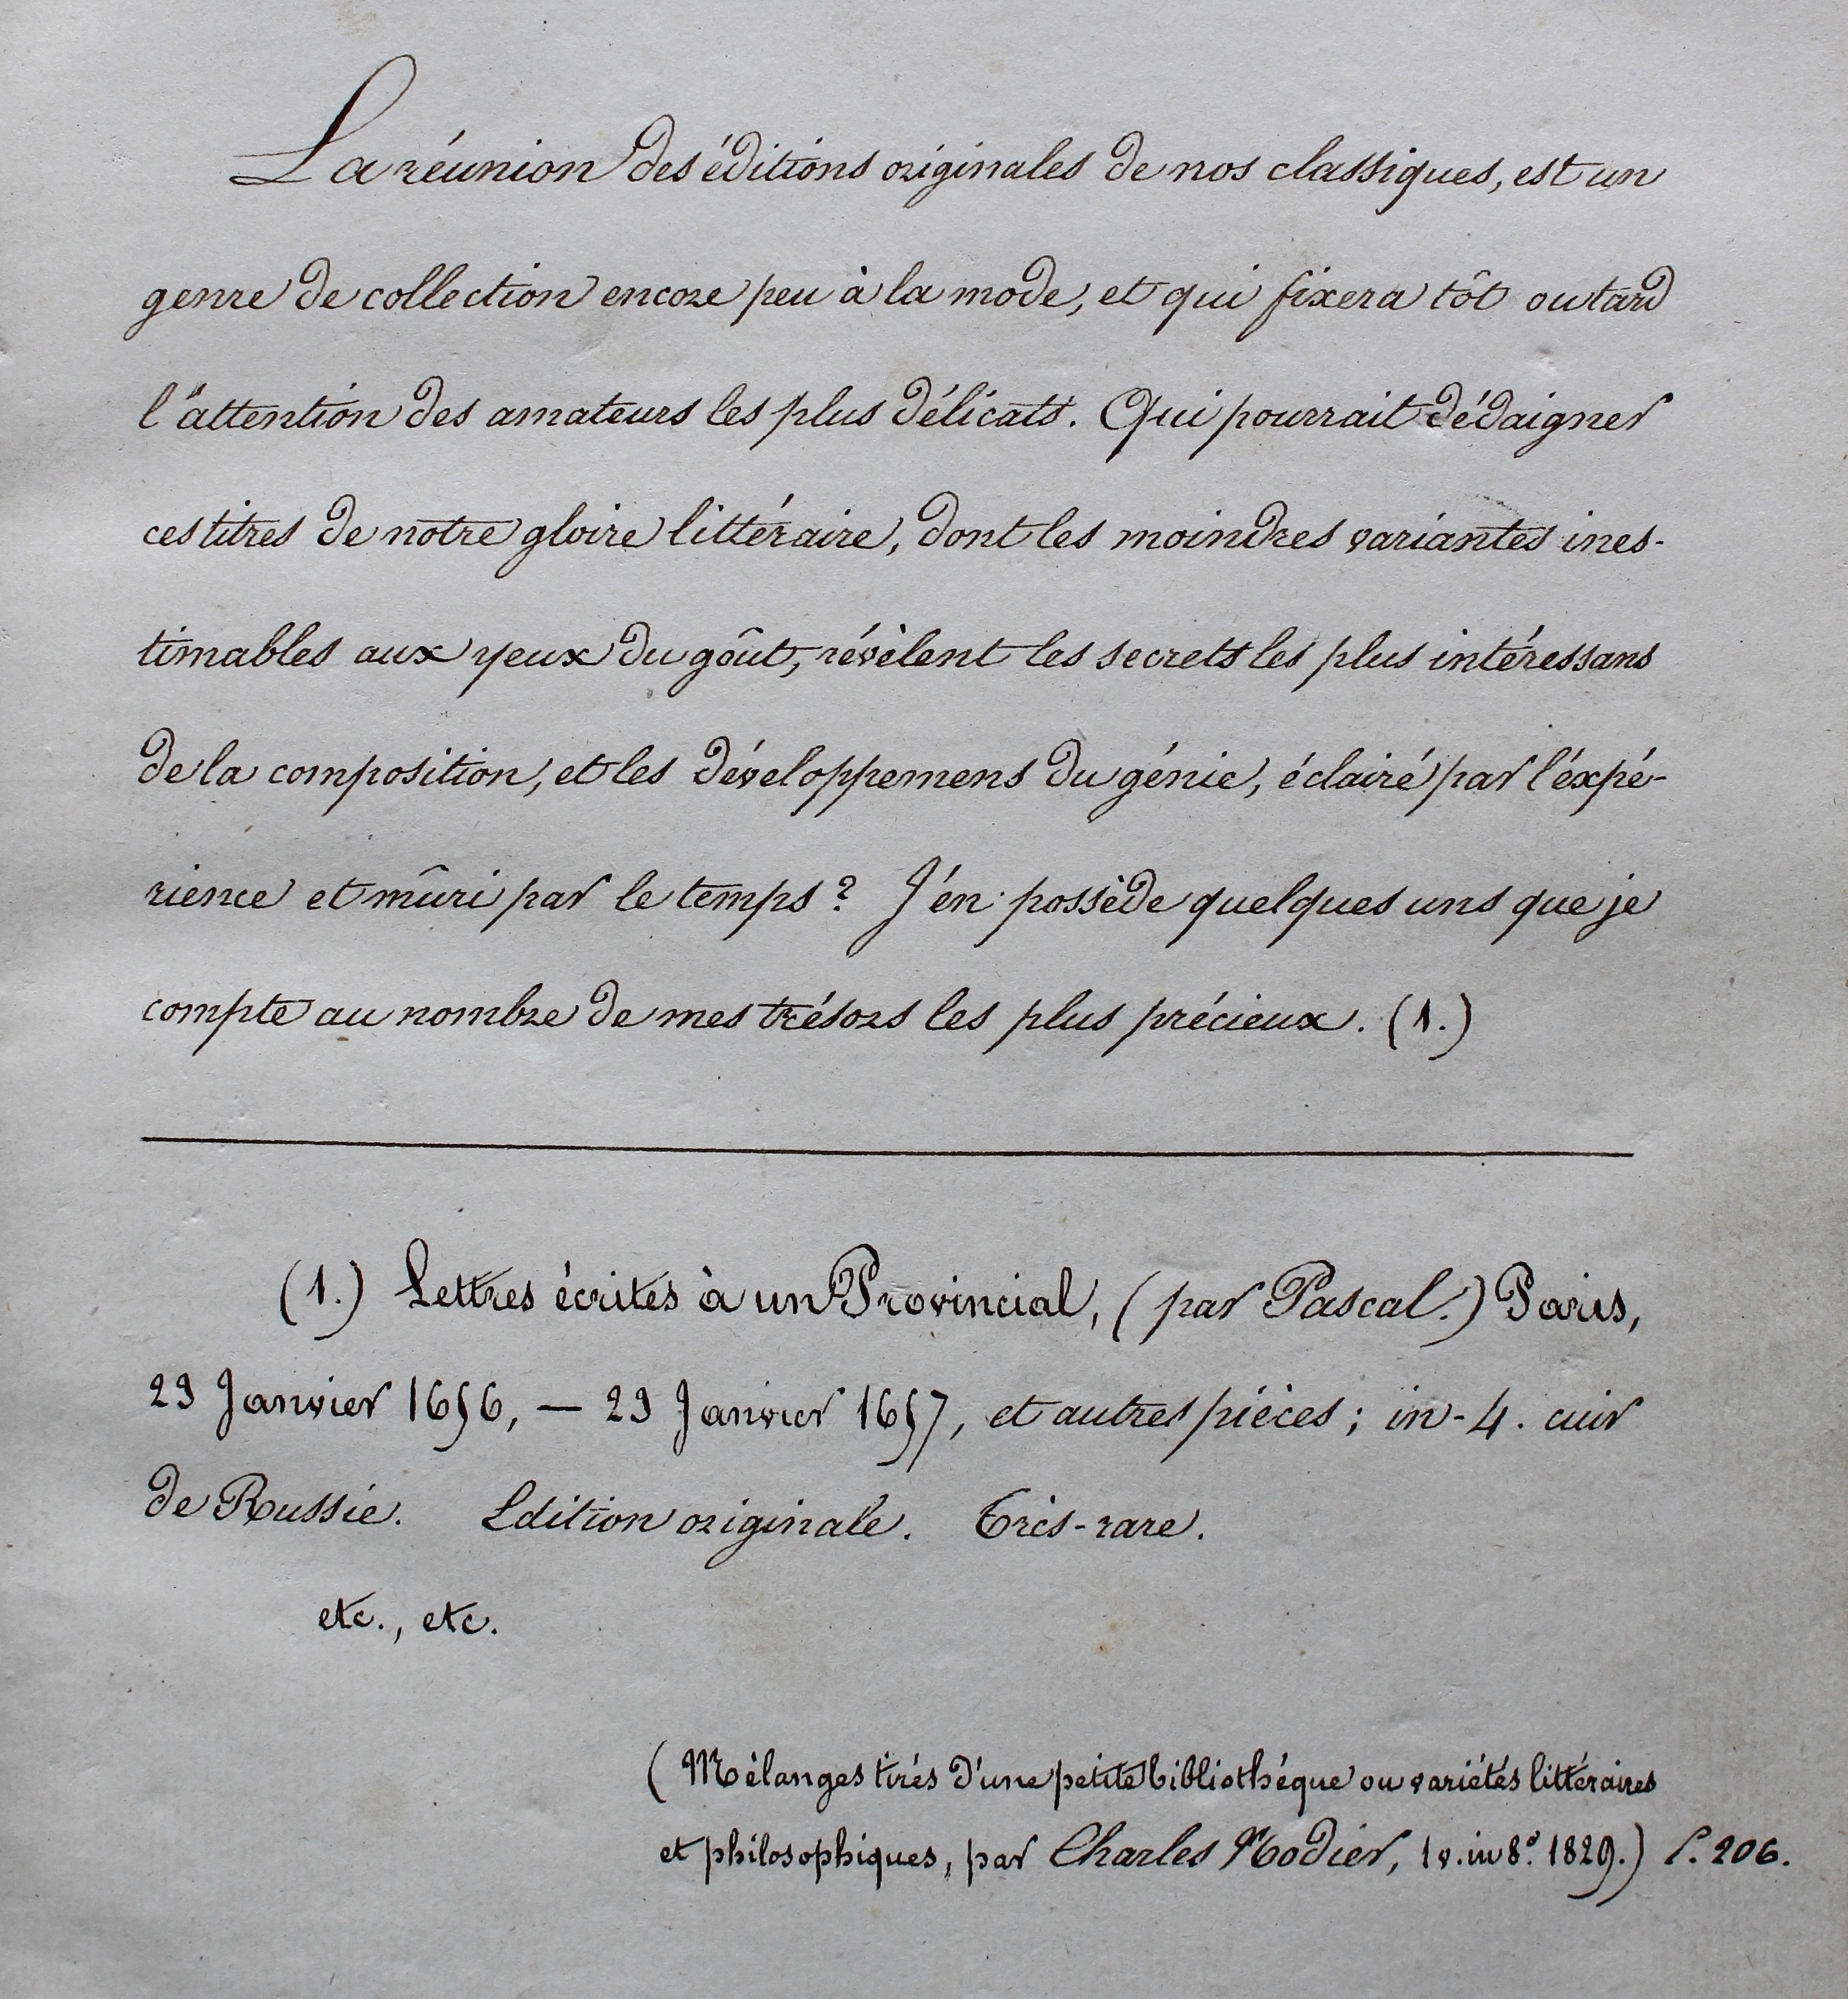 La réunion des éditions originales de nos classiques, est un
genre de collection encore peu à la mode, et qui fixera tôt ou tard
l'attention des amateurs les plus délicats. Qui pourrait dédaigner
ces titres de notre gloire littéraire, dont les moindres variantes ines-
timables aux yeux du goût, révèlent les secrets les plus intéressans
de la composition, et les développemens du génie, éclairé par l'éxpé-
rience et mûri par le temps? J'en possède quelques uns que je
compte au nombre de mes trésors les plus précieux. (1.)
(1.) Lettres écrites à un Provincial, (par Pascal.) Paris,
23 Janvier 1656, — 23 Janvier 1657, et autres pièces; in-4. cuir
de Russie. Edition originale. Très-rare.
etc., etc.
(Mélanges tirés d'une petite bibliothéque ou variétés littéraires
et philosophiques, par Charles Nodier, 1 v. in 8.º 1829.) P. 206.